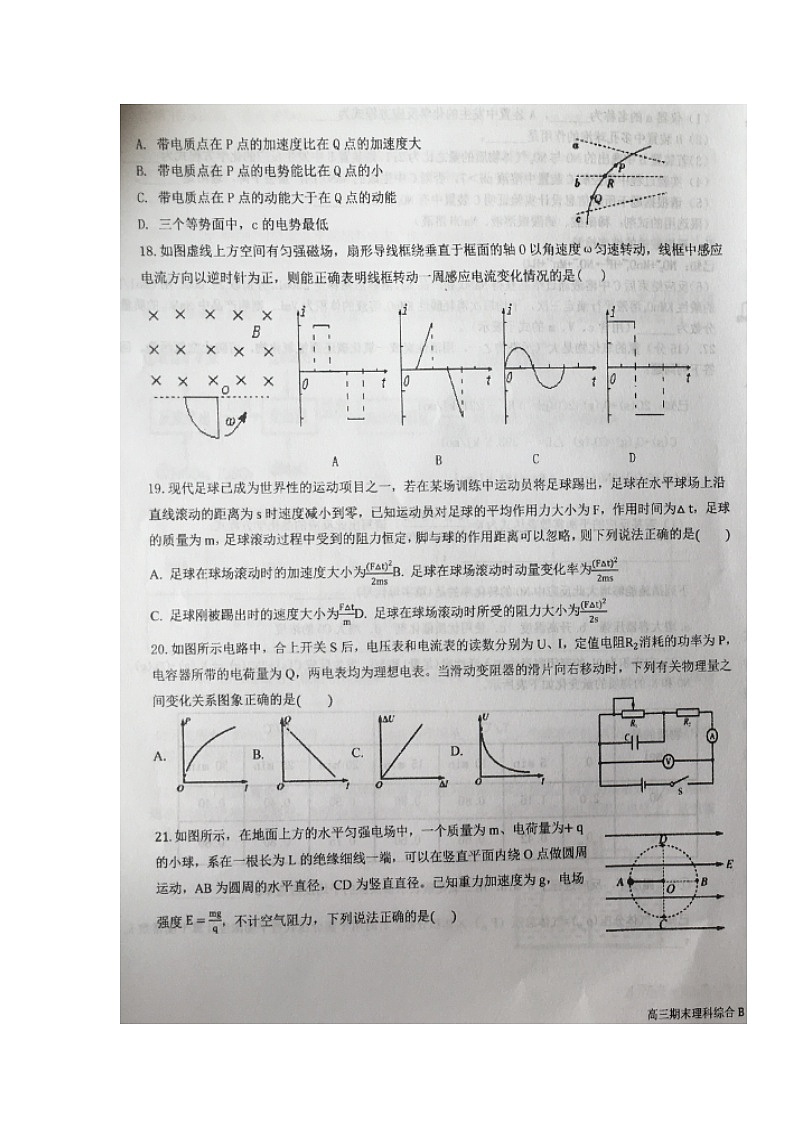 A. 带电质点在 P 点的加速度比在 Q 点的加速度大
B. 带电质点在 P 点的电势能比在 Q 点的小
C. 带电质点在 P 点的动能大于在 Q 点的动能
D. 三个等势面中，c 的电势最低
a
P
b
R
Q
c
18. 如图虚线上方空间有匀强磁场，扇形导线框绕垂直于框面的轴 O 以角速度 ω 匀速转动，线框中感应
电流方向以逆时针为正，则能正确表明线框转动一周感应电流变化情况的是( )
B
O
ω
i
0
t
i
0
t
i
0
t
i
0
t
A
B
C
D
19. 现代足球已成为世界性的运动项目之一，若在某场训练中运动员将足球踢出，足球在水平球场上沿
直线滚动的距离为 s 时速度减小到零，已知运动员对足球的平均作用力大小为 F，作用时间为Δt，足球
的质量为 m，足球滚动过程中受到的阻力恒定，脚与球的作用距离可以忽略，则下列说法正确的是( )
A. 足球在球场滚动时的加速度大小为(FΔt)²/2ms B. 足球在球场滚动时动量变化率为(FΔt)²/2ms
C. 足球刚被踢出时的速度大小为FΔt/m D. 足球在球场滚动时所受的阻力大小为(FΔt)²/2s
20. 如图所示电路中，合上开关 S 后，电压表和电流表的读数分别为 U、I，定值电阻R₂消耗的功率为 P，
电容器所带的电荷量为 Q，两电表均为理想电表。当滑动变阻器的滑片向右移动时，下列有关物理量之
间变化关系图象正确的是( )
A.
P
O
I
B.
Q
O
I
C.
ΔU
O
ΔI
D.
U
O
I
C
V
A
S
21. 如图所示，在地面上方的水平匀强电场中，一个质量为 m、电荷量为+ q
的小球，系在一根长为 L 的绝缘细线一端，可以在竖直平面内绕 O 点做圆周
运动，AB 为圆周的水平直径，CD 为竖直直径。已知重力加速度为 g，电场
强度 E = mg/q，不计空气阻力，下列说法正确的是( )
D
E
A
O
B
C
高三期末理科综合 B